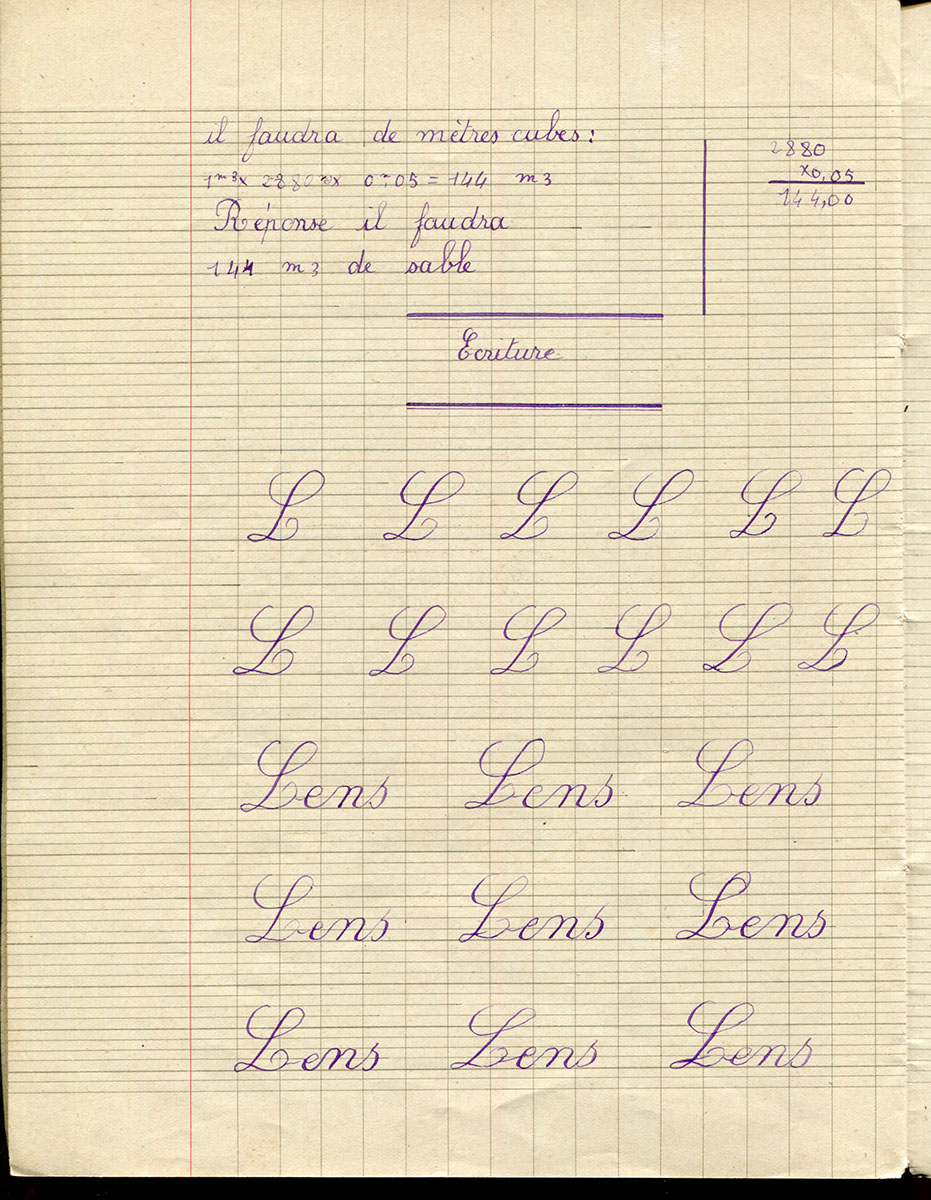 il faudra de mètres cubes :
1m3 x 2880 x 0,05 = 144 m3
Réponse il faudra
144 m3 de sable
2880
x0,05
144,00
Ecriture
L L L L L L
L L L L L L
Lens Lens Lens
Lens Lens Lens
Lens Lens Lens